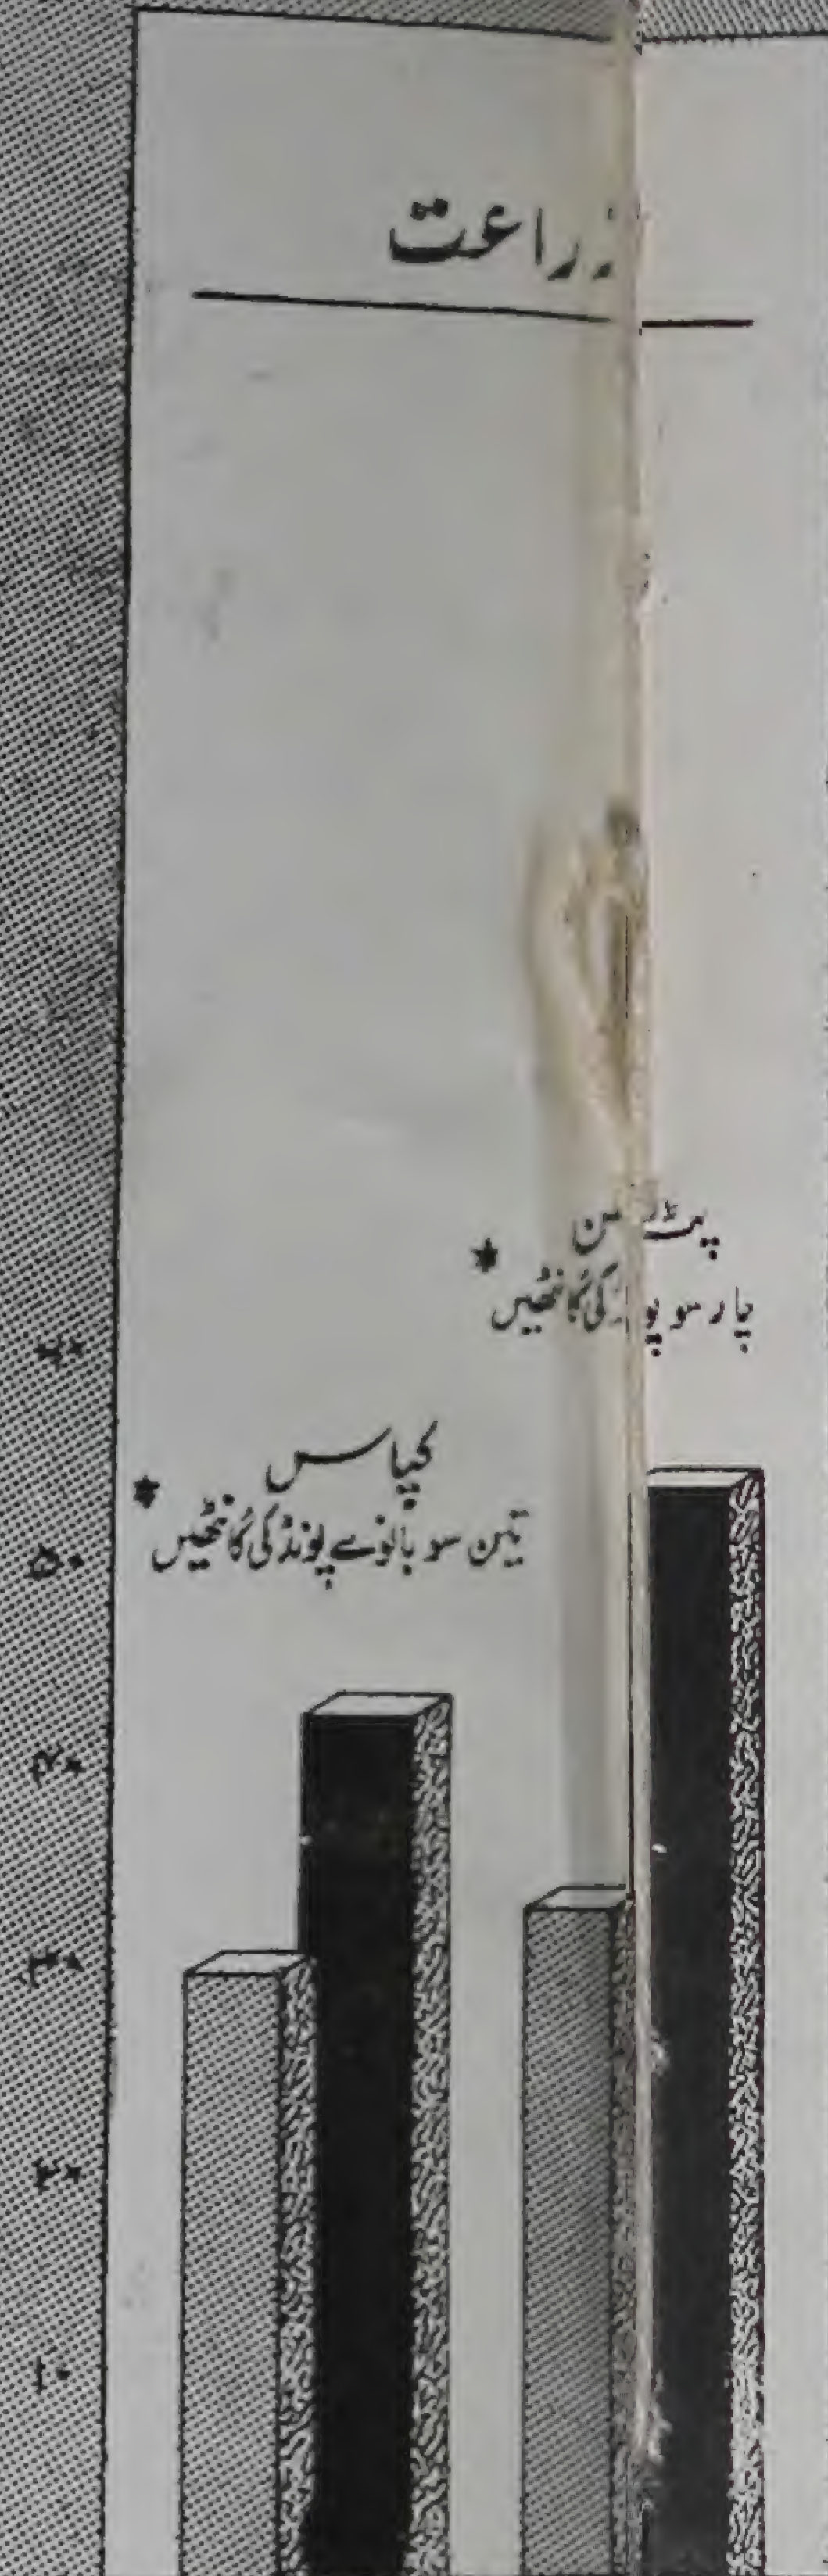 زراعت
پٹ سن
چار سو پونڈ کی گانٹھیں
★
کپاس
تین سو بانوے پونڈ کی گانٹھیں
★
۶۰
۵۰
۴۰
۳۰
۲۰
۱۰